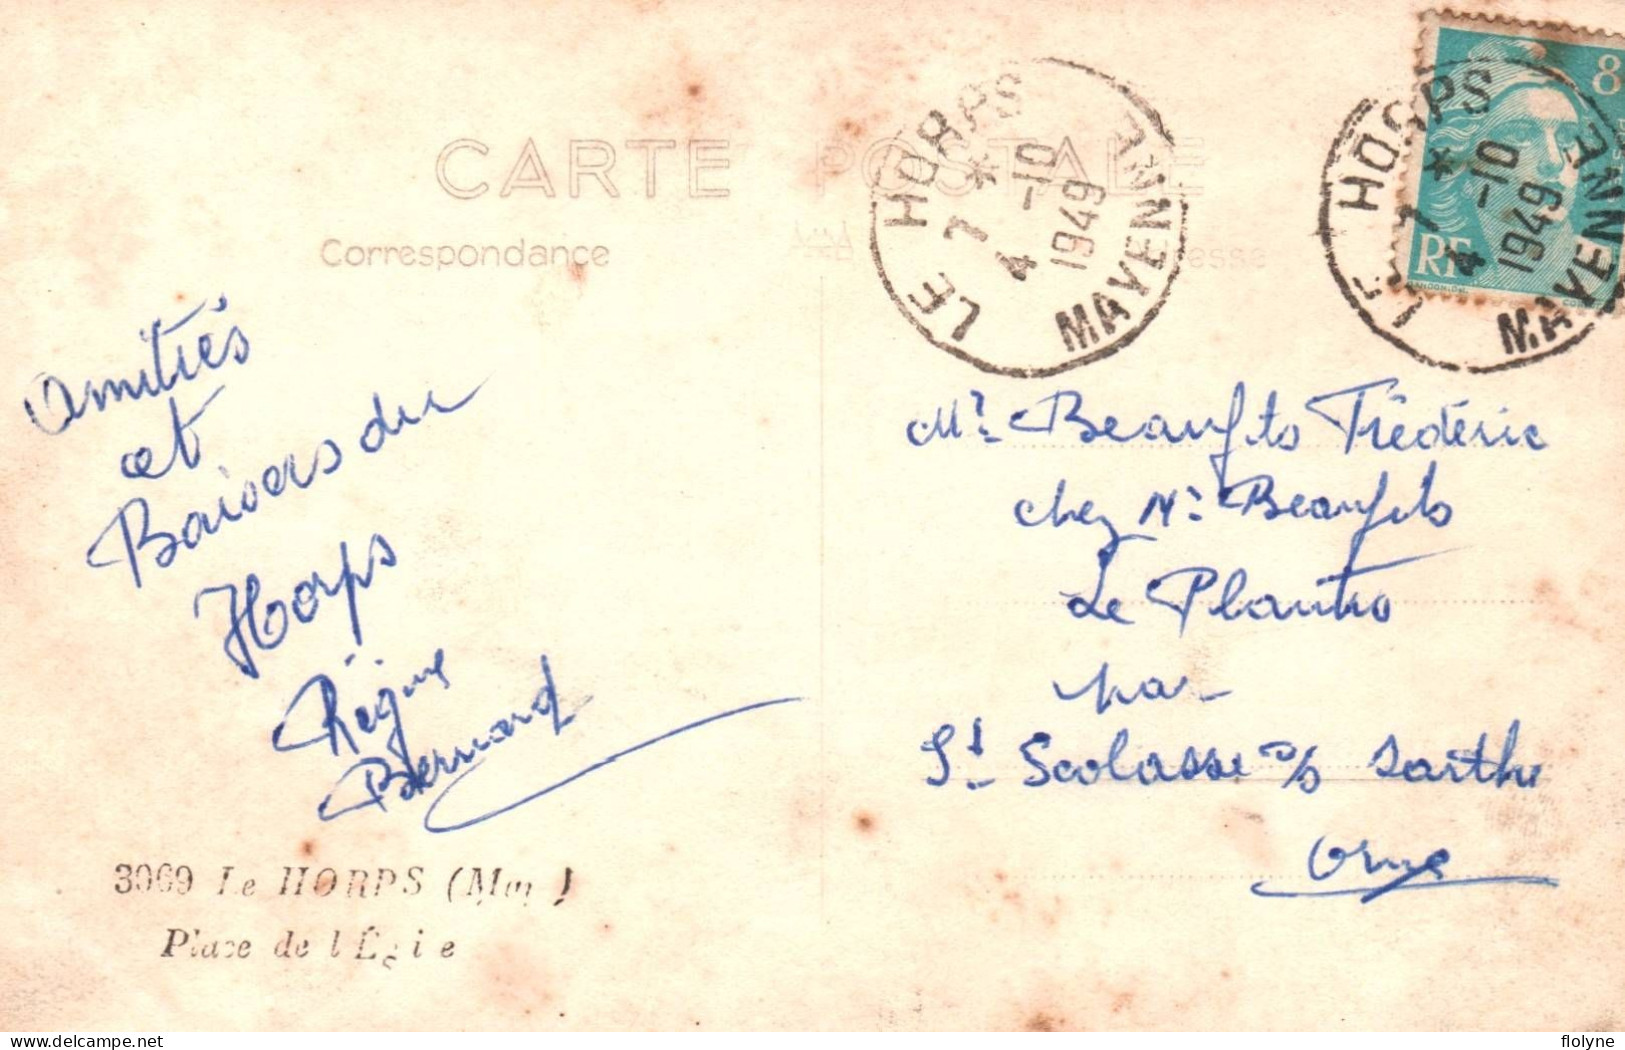 CARTE POSTALE
Correspondance
LE HORPS
MAYENNE
7 * 
4 -10
1949
LE HORPS
MAYENNE
7 *
4 -10
1949
8
RF
Amitiés
et
Baisers du
Horps
Régine
Bernard
Mr Beaufils Frédéric
chez Mr Beaufils
Le Plantis
par
St Scolasse s/s Sarthe
Orne
3069 Le HORPS (May )
Place de l'Eglie
www.delcampe.net
flolyne